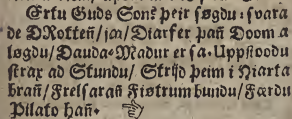 Ertu Guds Sonꝛ þeir søgdu: svara
de DRotteñ/ jaa/ Diarfer pañ Doom a
løgdu/ Dauda-Madur er sa. Uppstoodu
strax ad Stundu/ Strijd þeim i Hiarta
brañ/ Frelsarañ Fiøtrum bundu/ Færdu
Pilato hañ.